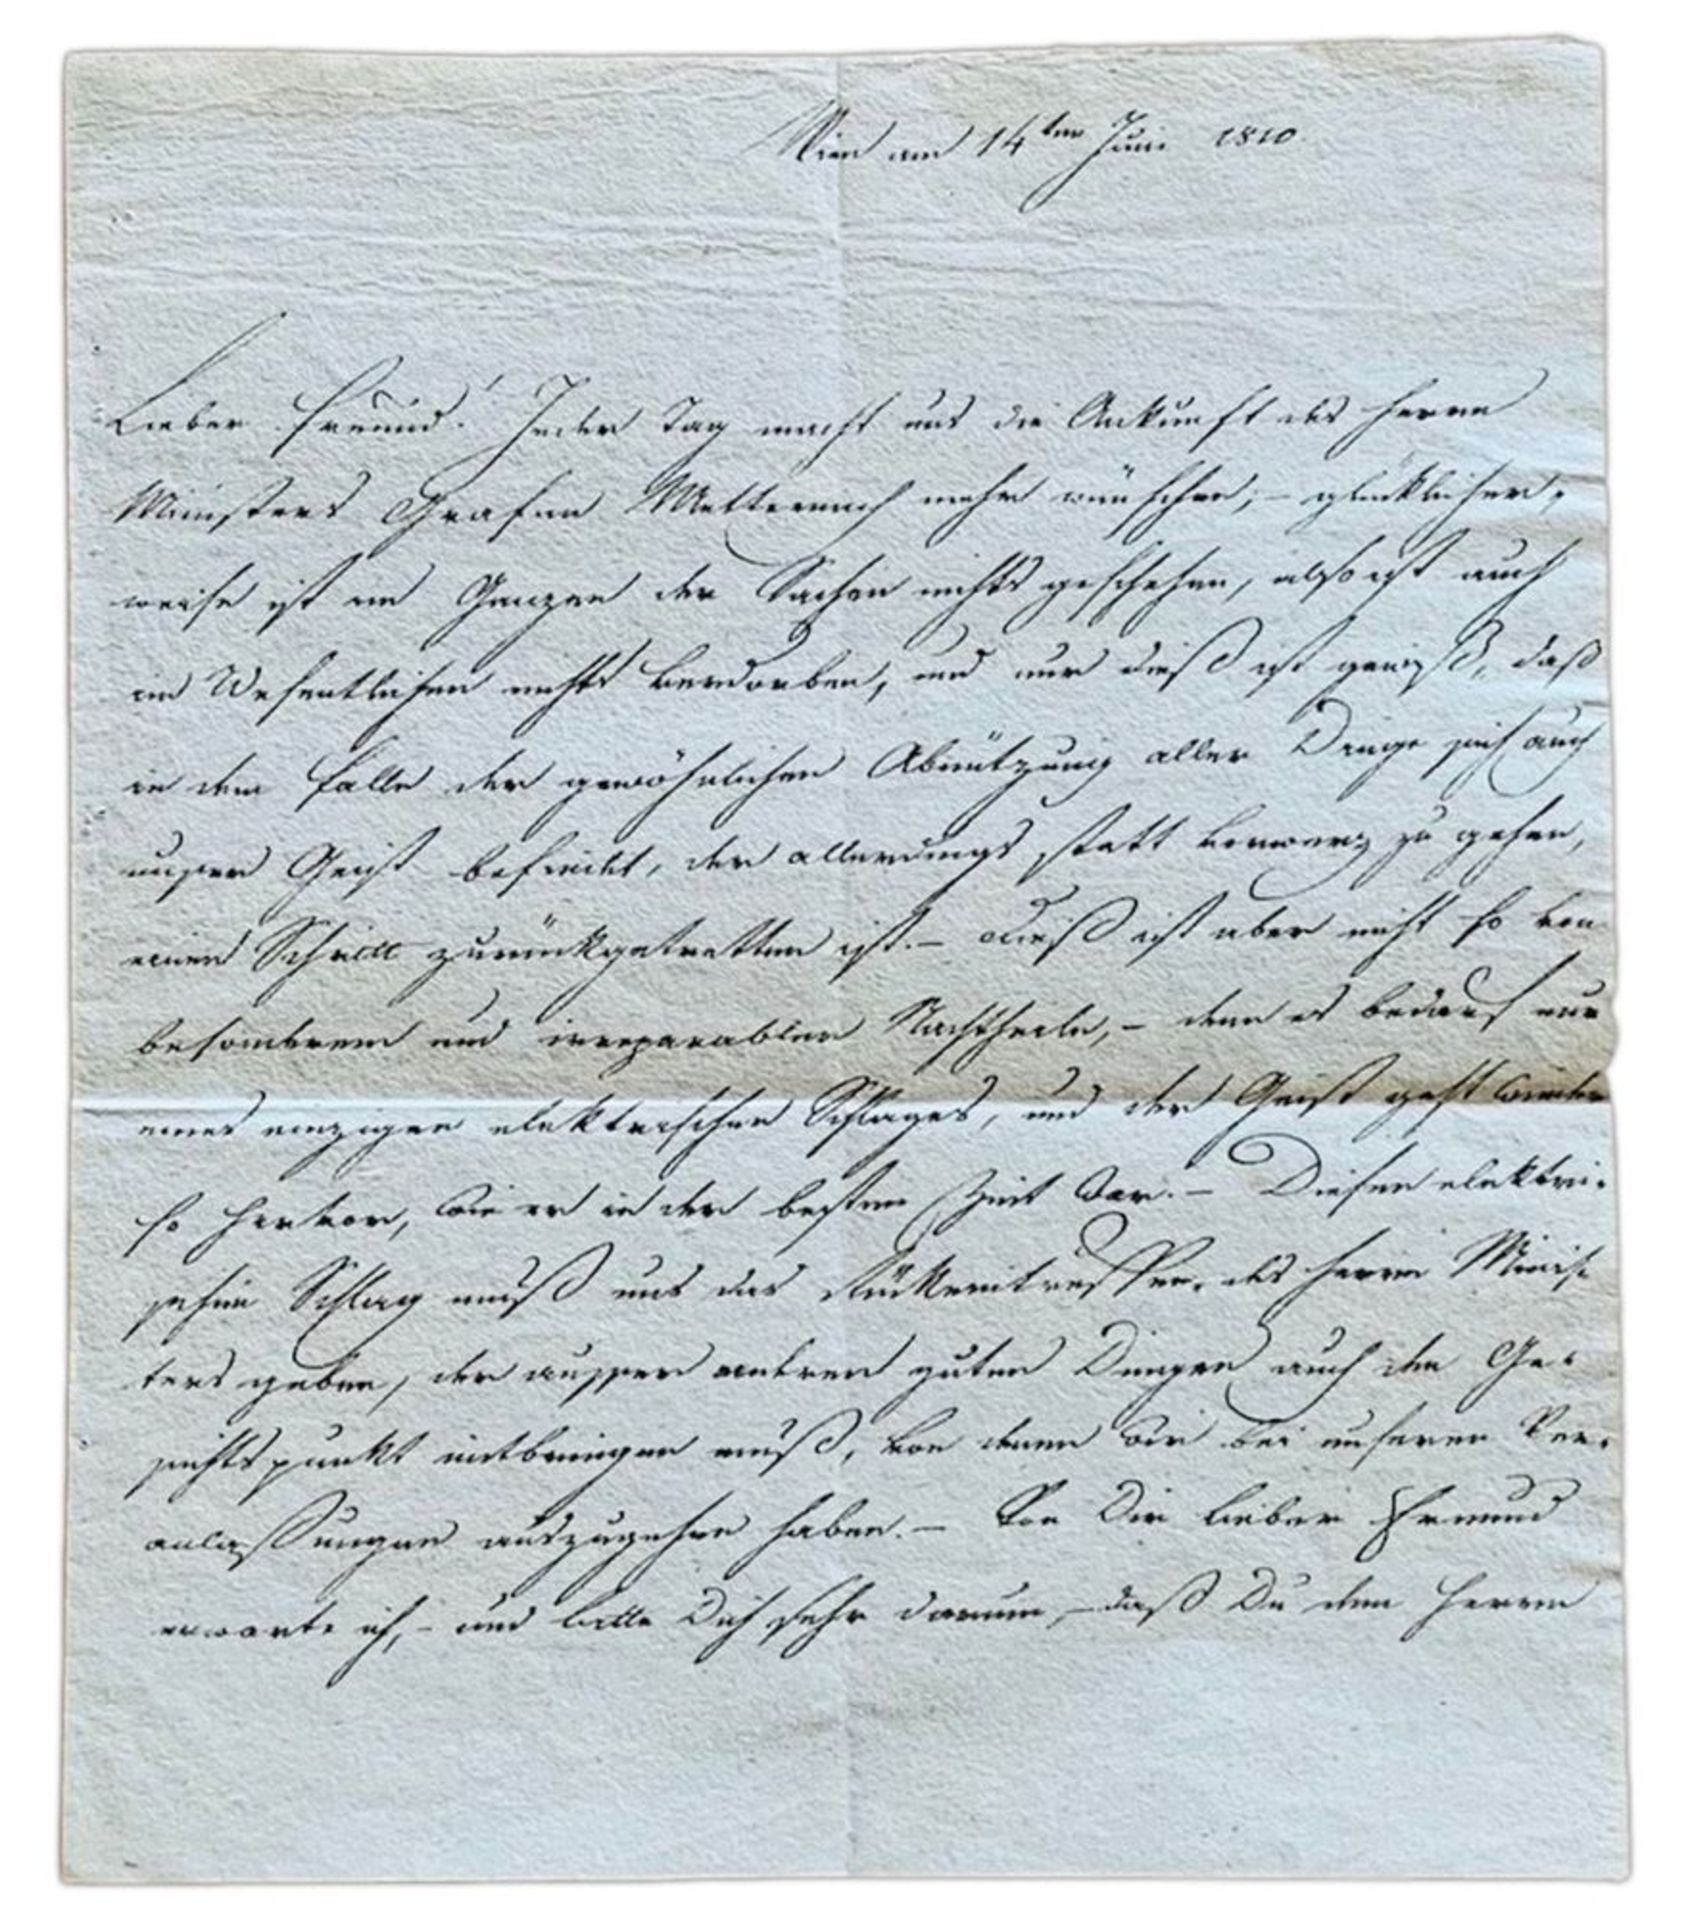 Wien am 14ten Juni 1810.
Lieber Freund! Jeder Tag macht uns die Ankunft des Herrn
Ministers Grafen Metternich mehr wünschen; – glücklicher,
weise ist im Ganzen der Sachen nichts geschehen, also ist auch
im Wesentlichen nichts verdorben, und nur dieß ist gewiß, daß
in dem Falle der gewöhnlichen Abnützung aller Dinge sich auch
unser Geist befindet, der allerdings statt vorwerz zu gehen,
einen Schritt zurückgetretten ist. – Dieß ist aber nicht so von
besonderem und irreparablen Nachtheile, – denn es bedarf nur
eines einzigen elektrischen Schlages, und der Geist geht wieder
so hervor, wie er in der besten Zeit war. – Diesen elektri-
schen Schlag muß uns das Rückeintreffen des Herrn Minis-
ters geben, der ausser anderen guten Dingen auch den Ge-
sichtspunkt mitbringen muß, von denen wir bei unseren Ver-
anlassungen auszugehen haben. – Von Dir lieber Freund
erwarte ich, – und bitte Dich sehr darum, – daß Du dem Herrn